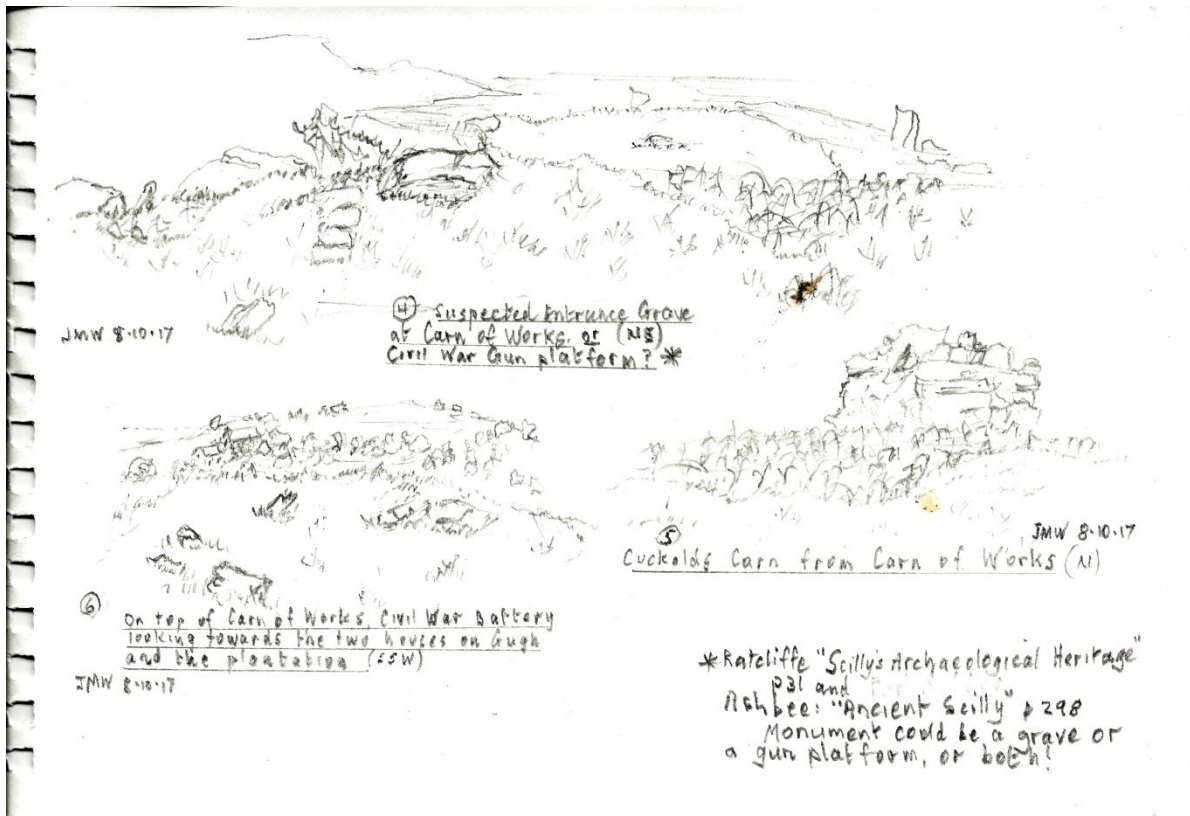 JMW 8.10.17
④ Suspected Entrance Grave
at Carn of Works. or (NE)
Civil War Gun platform? *
JMW 8.10.17
⑤
Cuckolds Carn from Carn of Works (N)
⑥ On top of Carn of Works, Civil War Battery
looking towards the two houses on Gugh
and the plantation (SSW)
JMW 8.10.17
* Ratcliffe "Scilly's Archaeological Heritage"
p31 and
Ashbee: "Ancient Scilly" p 298
Monument could be a grave or
a gun platform, or both!